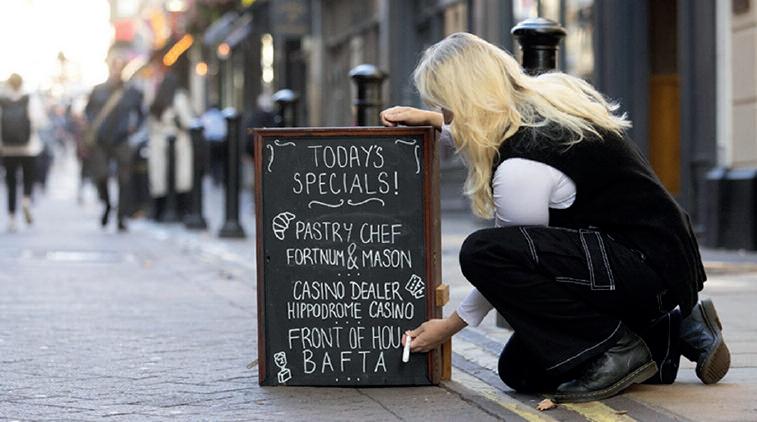 TODAY'S
SPECIALS!
PASTRY CHEF
FORTNUM & MASON
CASINO DEALER
HIPPODROME CASINO
FRONT OF HOU
BAFTA